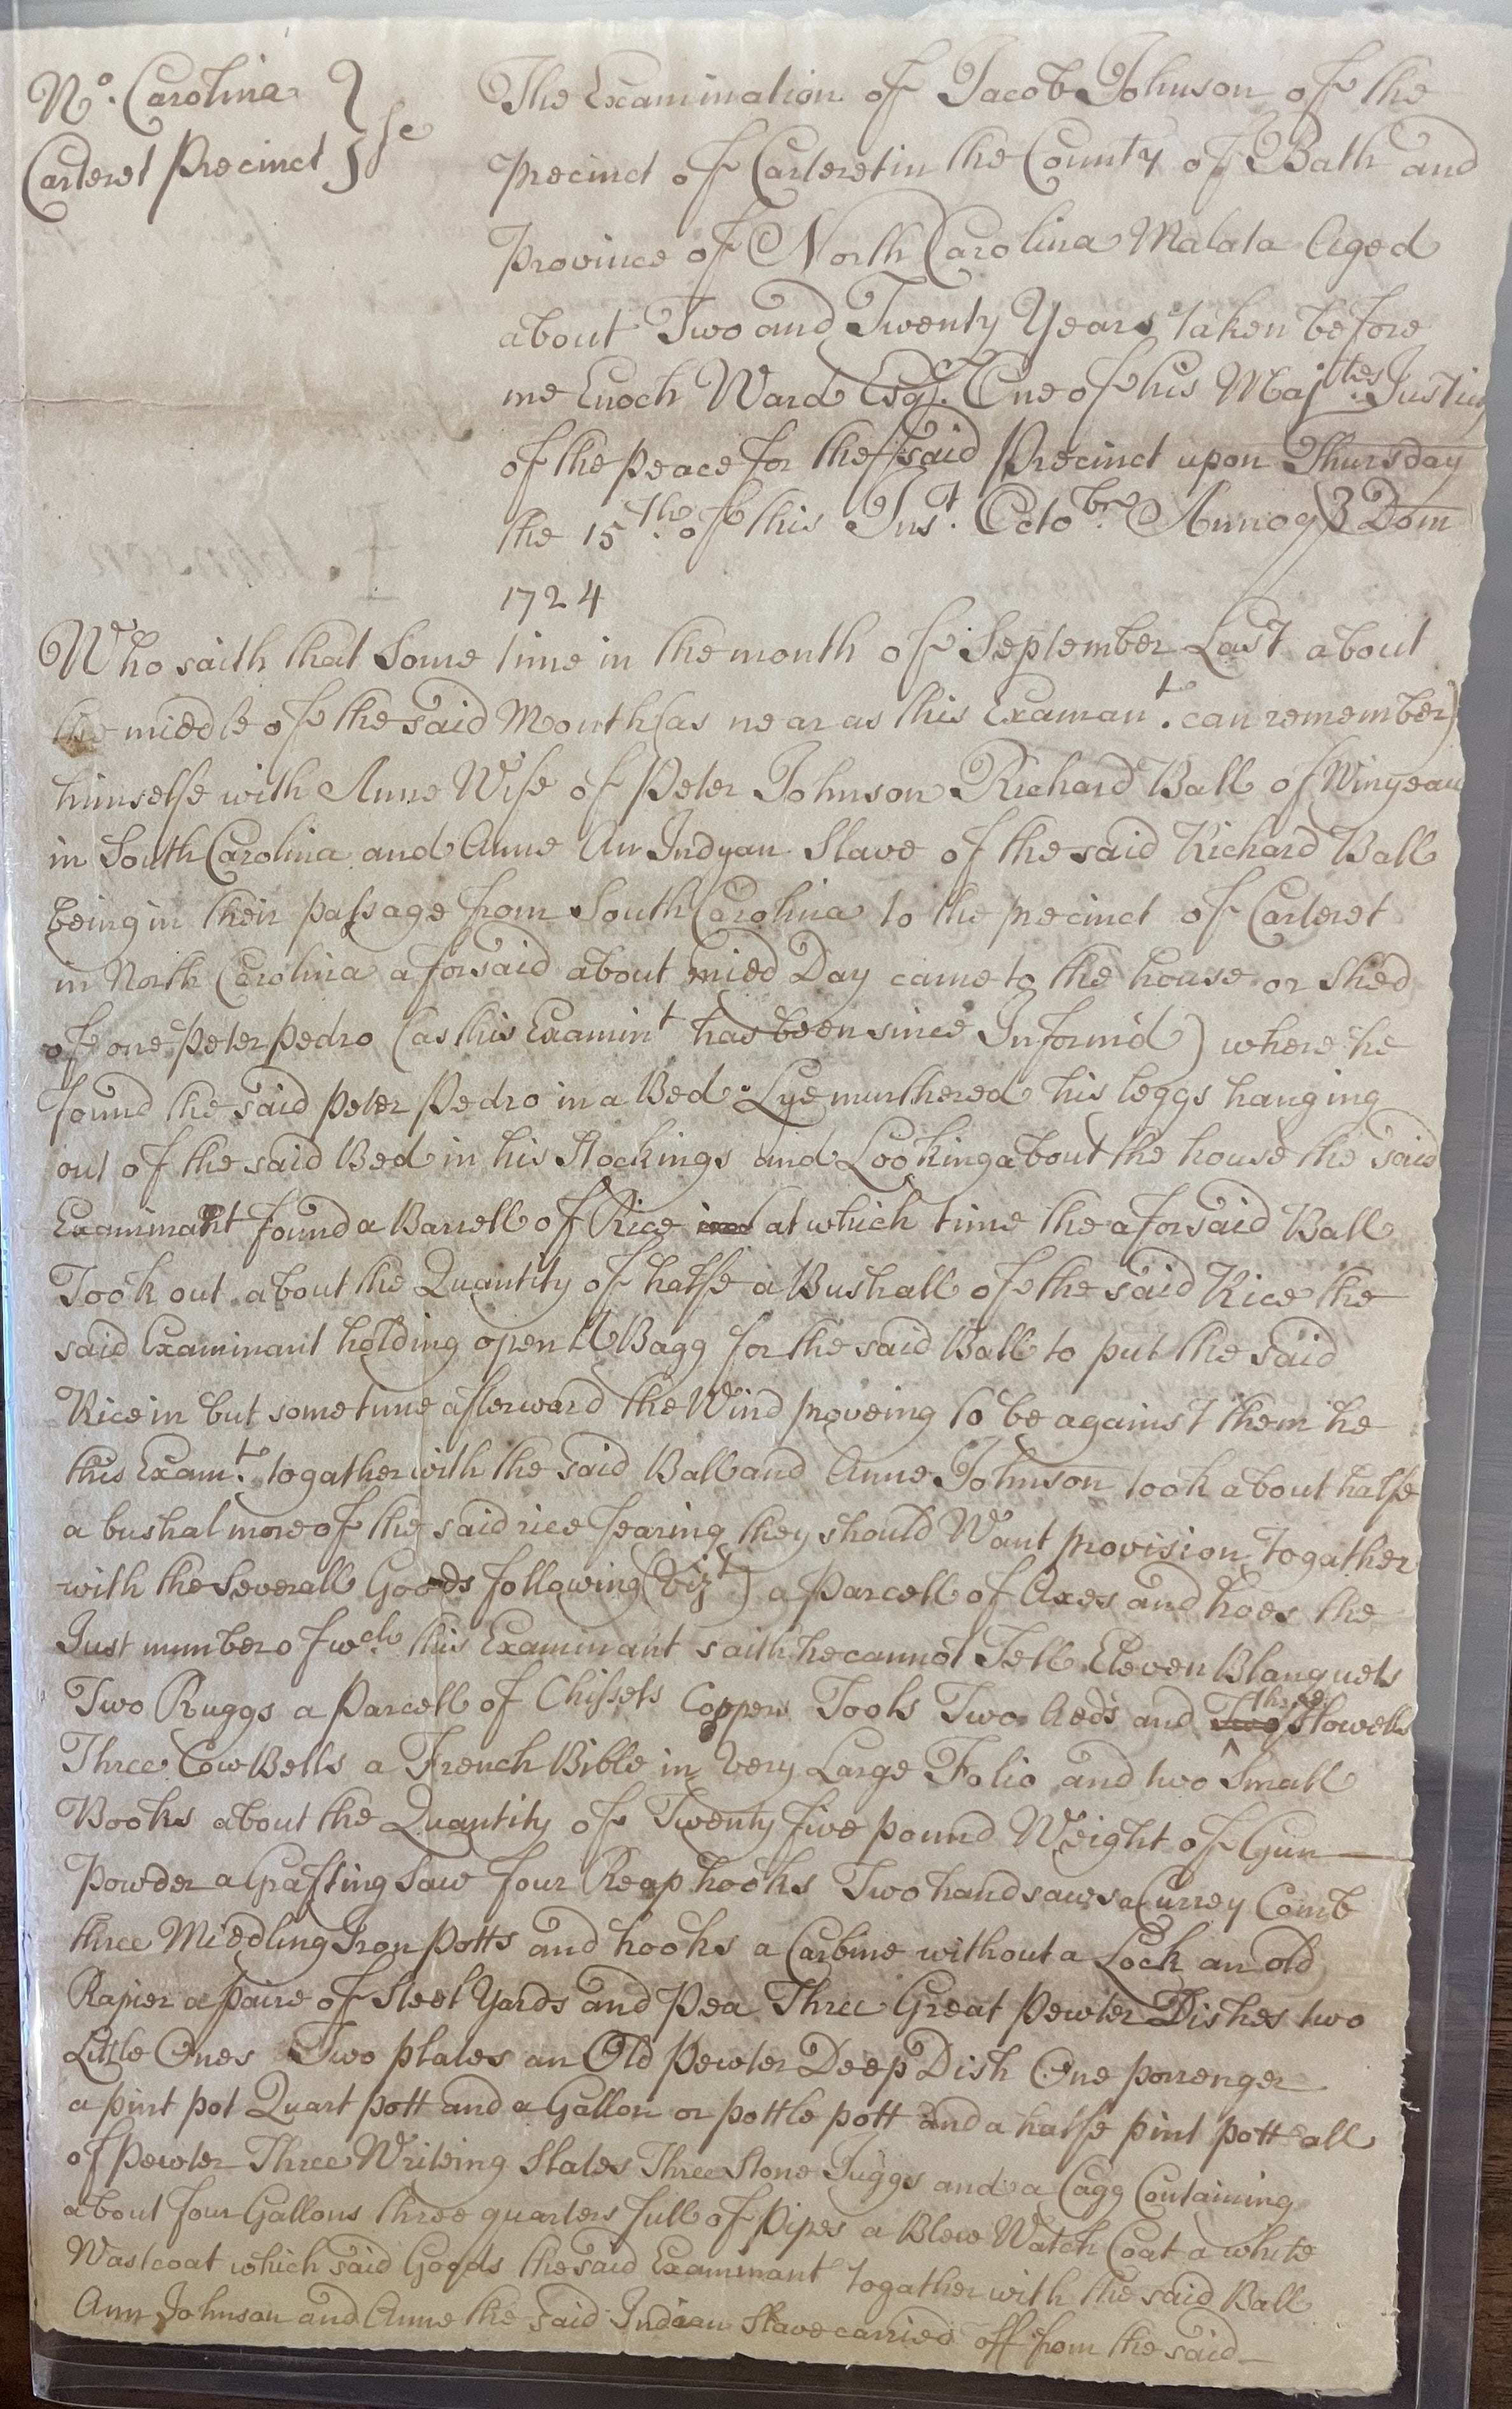 No. Carolina } sc
Carteret Precinct }
The Examination of Jacob Johnson of the
Precinct of Carteret in the County of Bath and
Province of North Carolina Malata Aged
about Two and Twenty Years taken before
me Enoch Ward Esqr. One of his Majtes. Justices
of the peace for the said Precinct upon Thursday
the 15th. of this Inst. Octobr. Annoq Dom
1724
Who saith that Some time in the month of September Last about
the middle of the said Month (as near as this Examant. can remember)
himselfe with Anne Wife of Peter Johnson Richard Ball of Winyeau
in South Carolina and Anne An Indyan Slave of the said Richard Ball
being in their passage from South Carolina to the precinct of Carteret
in North Carolina aforsaid about mied Day came to the house or shed
of one Peter Pedro (as this Examint has been since Informd) where he
found the said Peter Pedro in a Bed Lye murthered his leggs hanging
out of the said Bed in his Stockings and Looking about the house the said
Examinant found a Barrell of Rice at which time the aforsaid Ball
Took out about the Quantity of halfe a Bushall of the said Rice the
said Examinant holding open A Bagg for the said Ball to put the said
Rice in but sometime afterward the Wind proveing to be against them he
this Examt. togather with the said Ball and Anne Johnson took about halfe
a bushal more of the said rice fearing they should Want provision togather
with the Severall Goods following (Vizt) a Parcell of Axes and hoes the
Just number of wch. this Examinant saith he cannot Tell Eleven Blanquets
Two Ruggs a Parcell of Chissels Coppers Tools Two Aeds and Two three Howells
Three Cow Bells a French Bible in Very Large Folio and two Small
Books about the Quantity of Twenty five pound Weight of Gun
Powder a Grafting Saw four Reap hooks Two handsaws a Currey Comb
three Miedling Iron Potts and hooks a Carbine without a Lock an old
Rapier a paire of Steel Yards and Pea Three Great Pewter Dishes two
Little Ones Two plates an Old Pewter Deep Dish One porrenger
a pint pot Quart pott and a Gallon or pottle pott and a halfe pint pott all
of Pewter Three Writeing Slates Three Stone Juggs and a Cagg Containing
about four Gallons three quarters full of Pipes a Blew Watch Coat a white
Wastcoat which said Goods the said Examinant togather with the said Ball
Ann Johnson and Anne the said Indian Slave carried off from the said